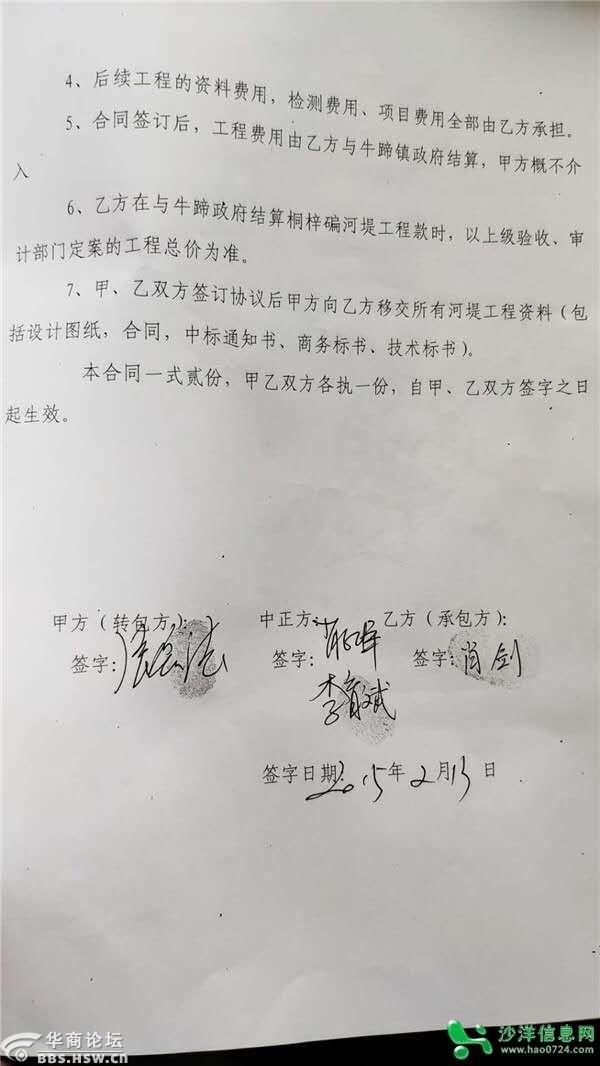 4、后续工程的资料费用，检测费用、项目费用全部由乙方承担。
5、合同签订后，工程费用由乙方与牛蹄镇政府结算，甲方概不介
入
6、乙方在与牛蹄政府结算桐梓碥河堤工程款时，以上级验收、审
计部门定案的工程总价为准。
7、甲、乙双方签订协议后甲方向乙方移交所有河堤工程资料（包
括设计图纸，合同，中标通知书、商务标书、技术标书）。
本合同一式贰份，甲乙双方各执一份，自甲、乙双方签字之日
起生效。
甲方（转包方）： 中正方： 乙方（承包方）：
签字： 签字： 签字：肖剑
李育斌
签字日期：2015年2月13日
华商论坛
BBS.HSW.CN
沙洋信息网
www.hao0724.com